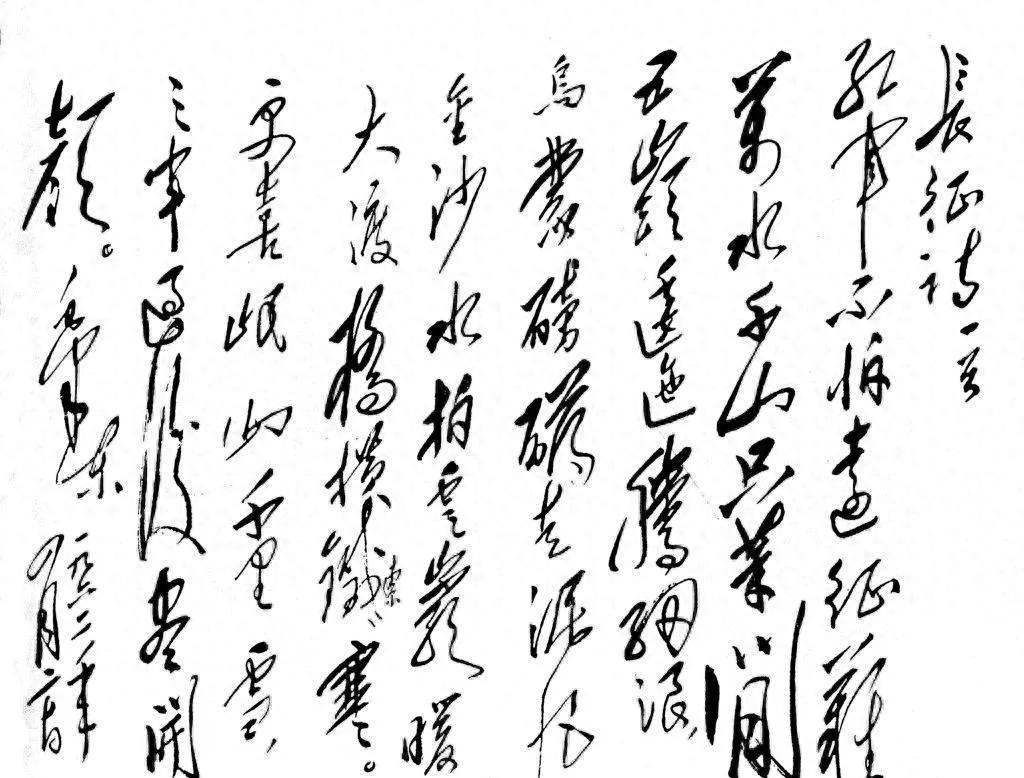 長征詩一首
紅軍不怕遠征難
萬水千山只等閒
五嶺逶迤騰細浪,
烏蒙磅礴走泥丸
金沙水拍雲巖暖
大渡橋橫鐵索寒。
更喜岷山千里雪,
三軍過後盡開
顏。毛澤東
一九六二年
四月二十日